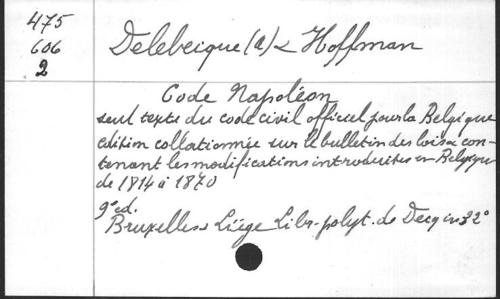 475
606
2
Delebecque (A) & Hoffman
Code Napoléon
seul texte du code civil officiel pour la Belgique
edition collationnée sur le bulletin des lois & con-
tenant les modifications introduites en Belgique
de 1814 à 1870
9e ed.
Bruxelles & Liège Libr. polyt. de Decq in 32°